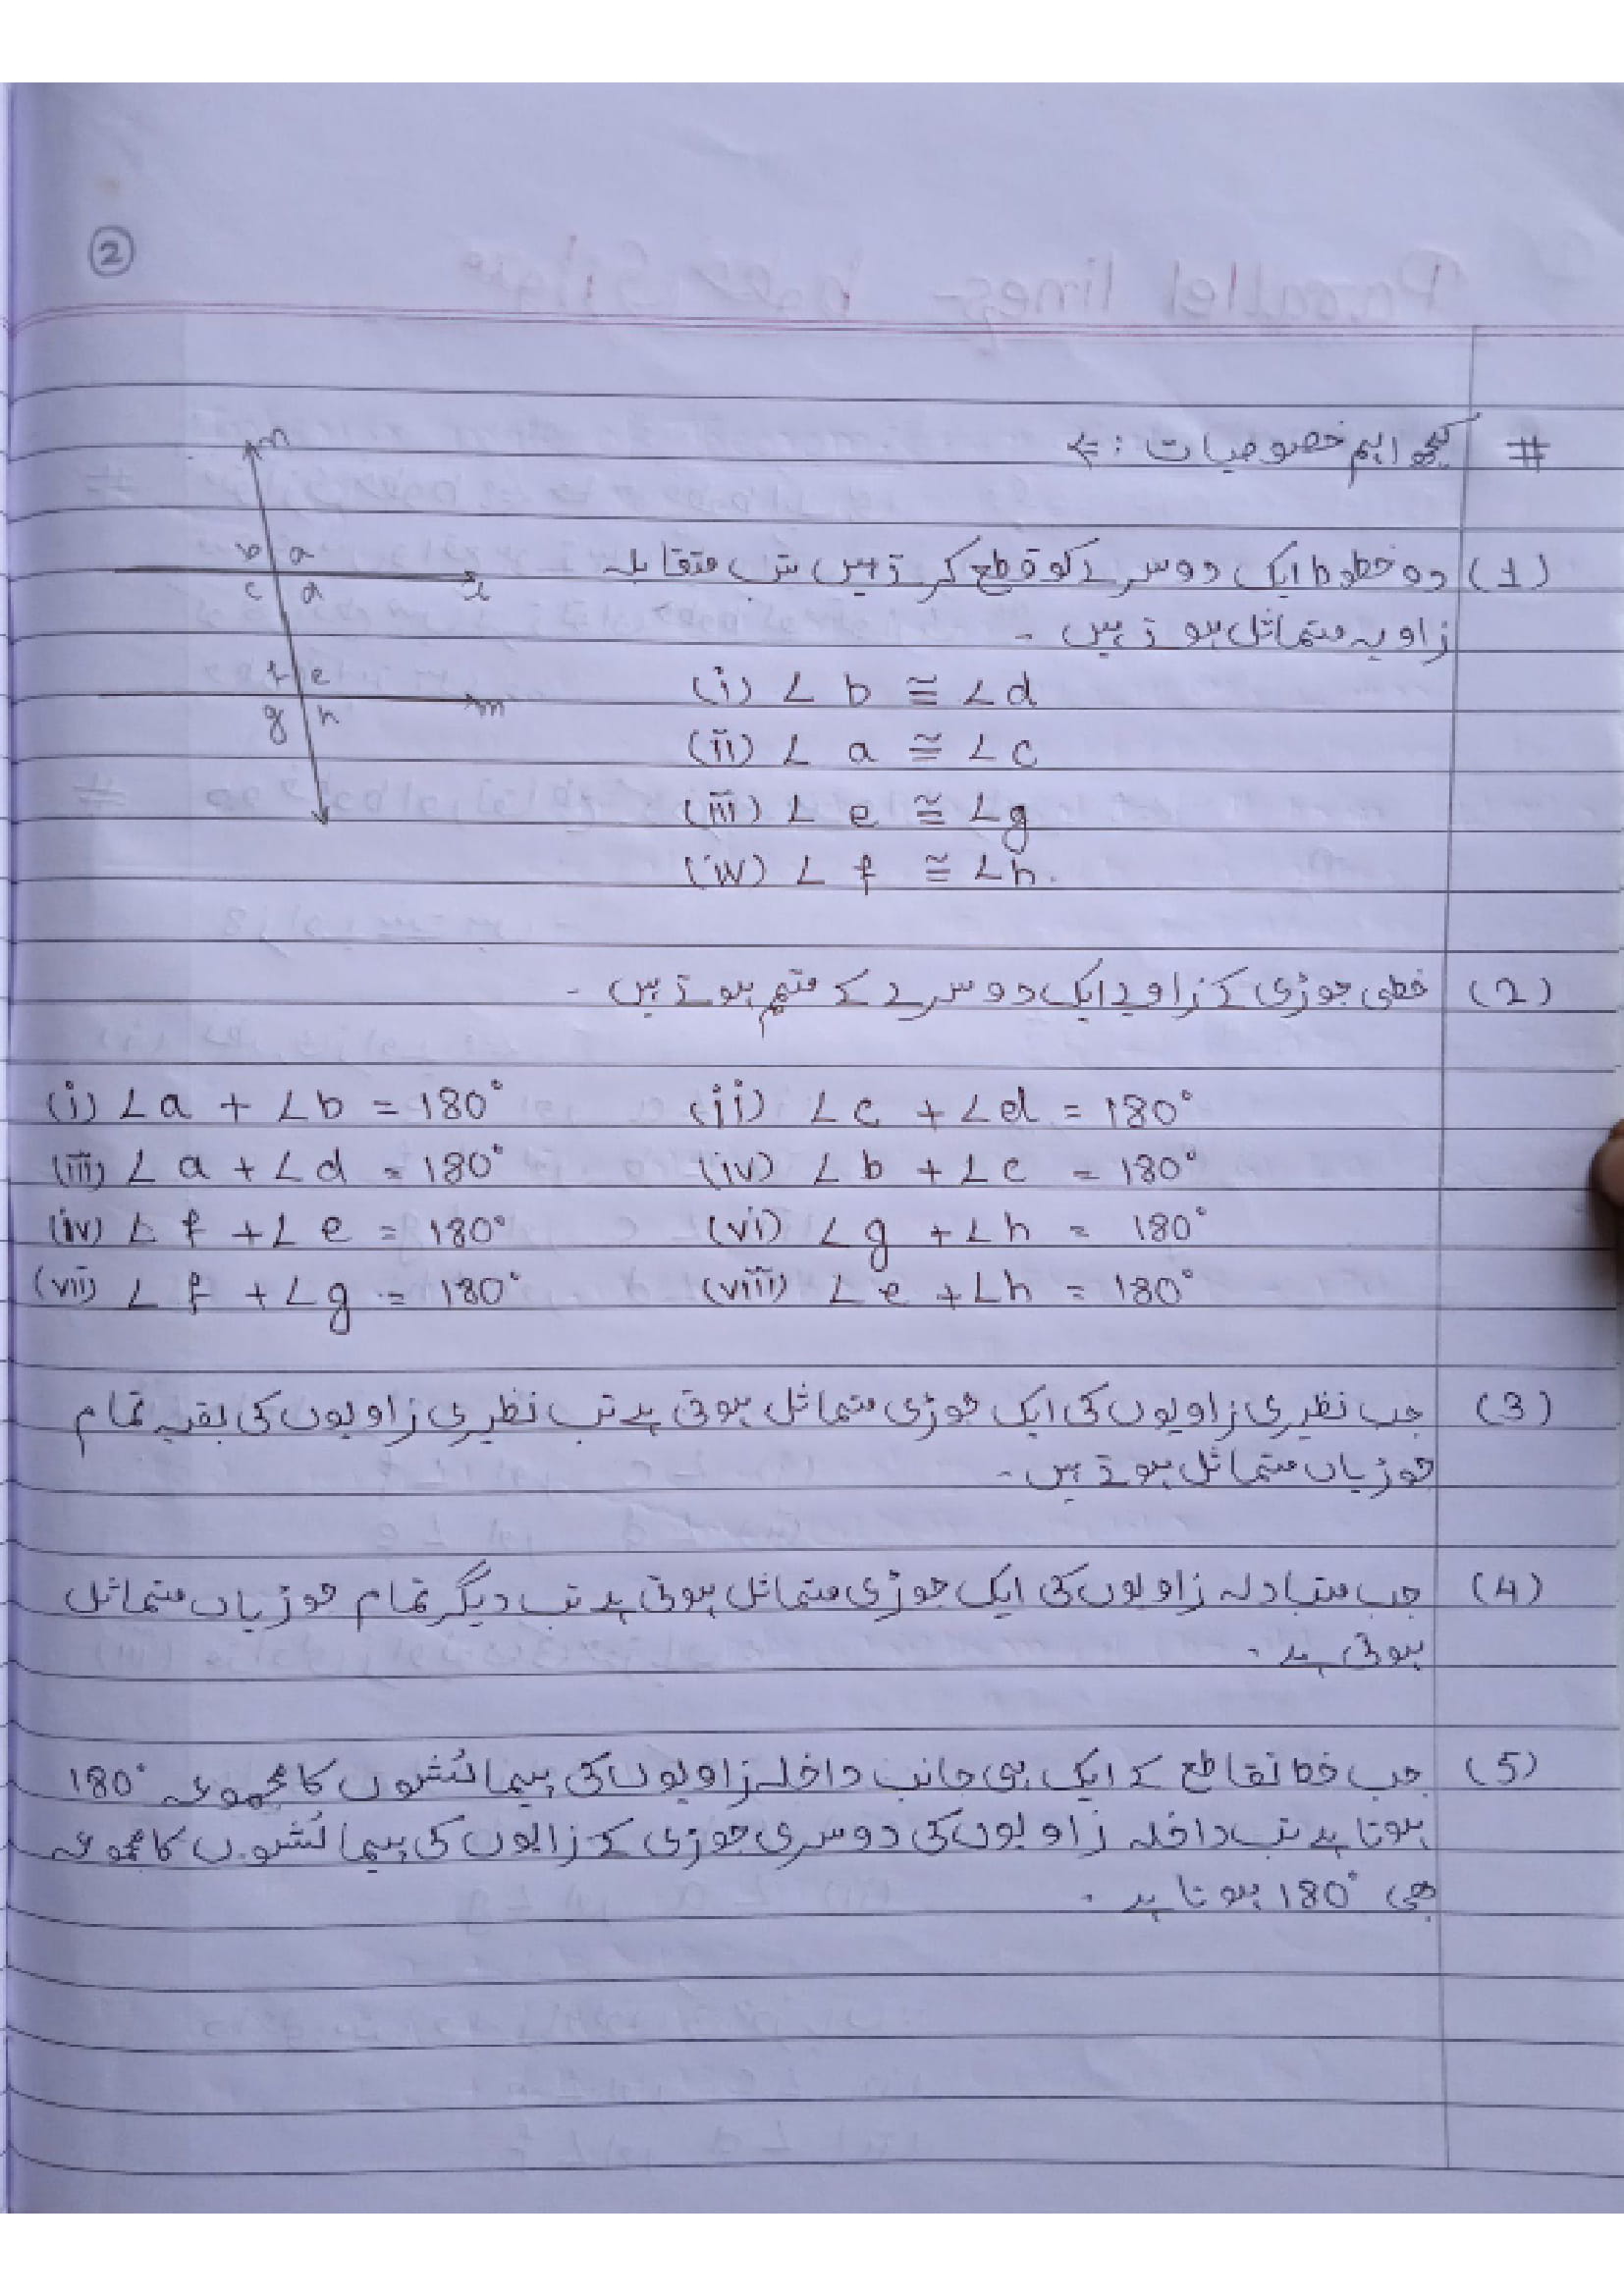 ②
# کچھ اہم خصوصیات :←
n
b a
c d
l
f e
g h
m
(1) دو خطوط ایک دوسرے کو قطع کرتے ہیں تب متقابلہ
زاویہ متماثل ہوتے ہیں ۔
(i) ∠ b ≅ ∠d
(ii) ∠ a ≅ ∠c
(iii) ∠ e ≅ ∠g
(iv) ∠ f ≅ ∠h.
(2) خطی جوڑی کے زاویے ایک دوسرے کے متمم ہوتے ہیں ۔
(i) ∠a + ∠b = 180° (ii) ∠c + ∠d = 180°
(iii) ∠ a + ∠d = 180° (iv) ∠ b + ∠c = 180°
(iv) ∠ f + ∠ e = 180° (vi) ∠g + ∠h = 180°
(vii) ∠ f + ∠g = 180° (viii) ∠e + ∠h = 180°
(3) جب نظیری زاویوں کی ایک جوڑی متماثل ہوتی ہے تب نظیری زاویوں کی بقیہ تمام
جوڑیاں متماثل ہوتے ہیں ۔
(4) جب متبادلہ زاویوں کی ایک جوڑی متماثل ہوتی ہے تب دیگر تمام جوڑیاں متماثل
ہوتی ہے ۔
(5) جب خط تقاطع کے ایک ہی جانب داخلہ زاویوں کی پیمائشوں کا مجموعہ 180°
ہوتا ہے تب داخلہ زاویوں کی دوسری جوڑی کے زایوں کی پیمائشوں کا مجموعہ
بھی 180° ہوتا ہے ۔